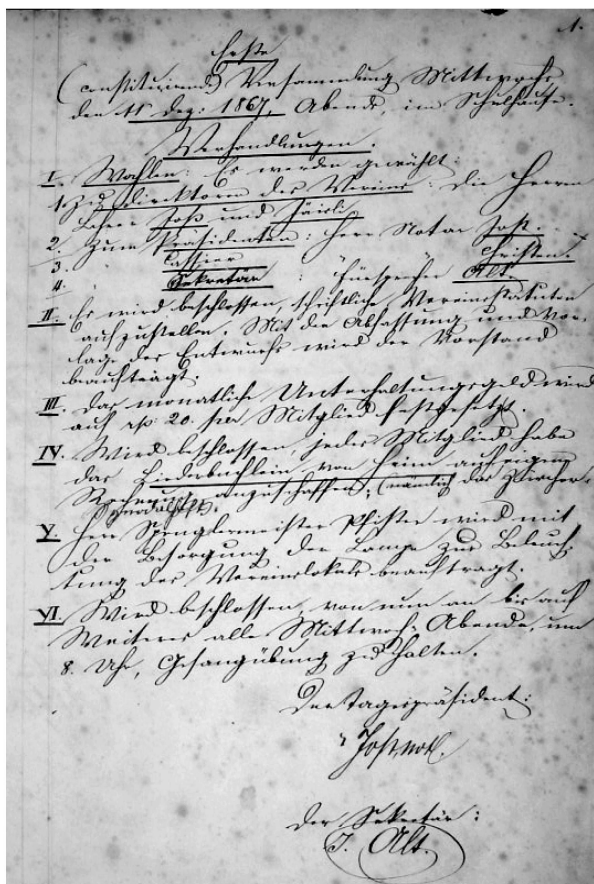 1.
Erste
(constituirende) Versammlung Mittwochs
den 11 Dez: 1867, Abends, im Schulhause.
Verhandlungen.
I. Wahlen: Es werden gewählt:
1. Zu Direktoren des Vereins: die Herren
Lehrer Joß und
2. Zum Präsidenten: Herr Notar Jost.
3. " Cassier " Christen.
4. " Sekretär : Fürsprecher Alt.
II. Es wird beschlossen, schriftliche Vereinsstatuten
aufzustellen. Mit der Abfassung und Vor-
lage des Entwurfs wird der Vorstand
beauftragt.
III. Das monatliche Unterhaltungsgeld wird
auf rp 20. per Mitglied festgesetzt.
IV. Wird beschlossen, jedes Mitglied habe
das Liederbüchlein von Heim auf eigene
Rechnung anzuschaffen; (nämlich das Zürcher-
Synodalheft).
V. Herr Spenglermeister Pfister wird mit
der Besorgung der Lampe zur Beleuch-
tung des Vereinslokals beauftragt.
VI. Wird beschlossen, von nun an bis auf
Weiteres alle Mittwoch Abends, um
8. Uhr, Gesangübung zu halten.
Der Tagespräsident:
Jost, Not.
Der Sekretär:
J. Alt.